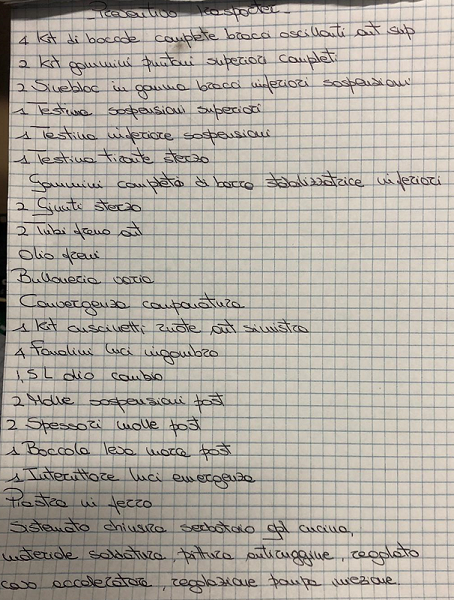 Preventivo Transporter
4 Kit di boccole complete bracci oscillanti ant sup
2 Kit gommini puntoni superiori completi
2 Silebloc in gomma bracci inferiori sospensioni
1 Testina sospensioni superiori
1 Testina inferiore sospensioni
1 Testina tirante sterzo
Gommini completi di barra stabilizzatrice inferiori
2 Giunti sterzo
2 Tubi freno ant
Olio freni
Bulloneria varia
Convergenza campanatura
1 Kit cuscinetti ruote ant sinistra
4 Fanalini luci ingombro
1,5 L olio cambio
2 Molle sospensioni post
2 Spessori molle post
1 Boccola leva marce post
1 Interuttore luci emergenza
Piastra in ferro
Sistemato chiusura serbatoio gpl cucina,
materiale saldatura, pittura antiruggine, regolato
cavo acceleratore, regolazione pompa iniezione